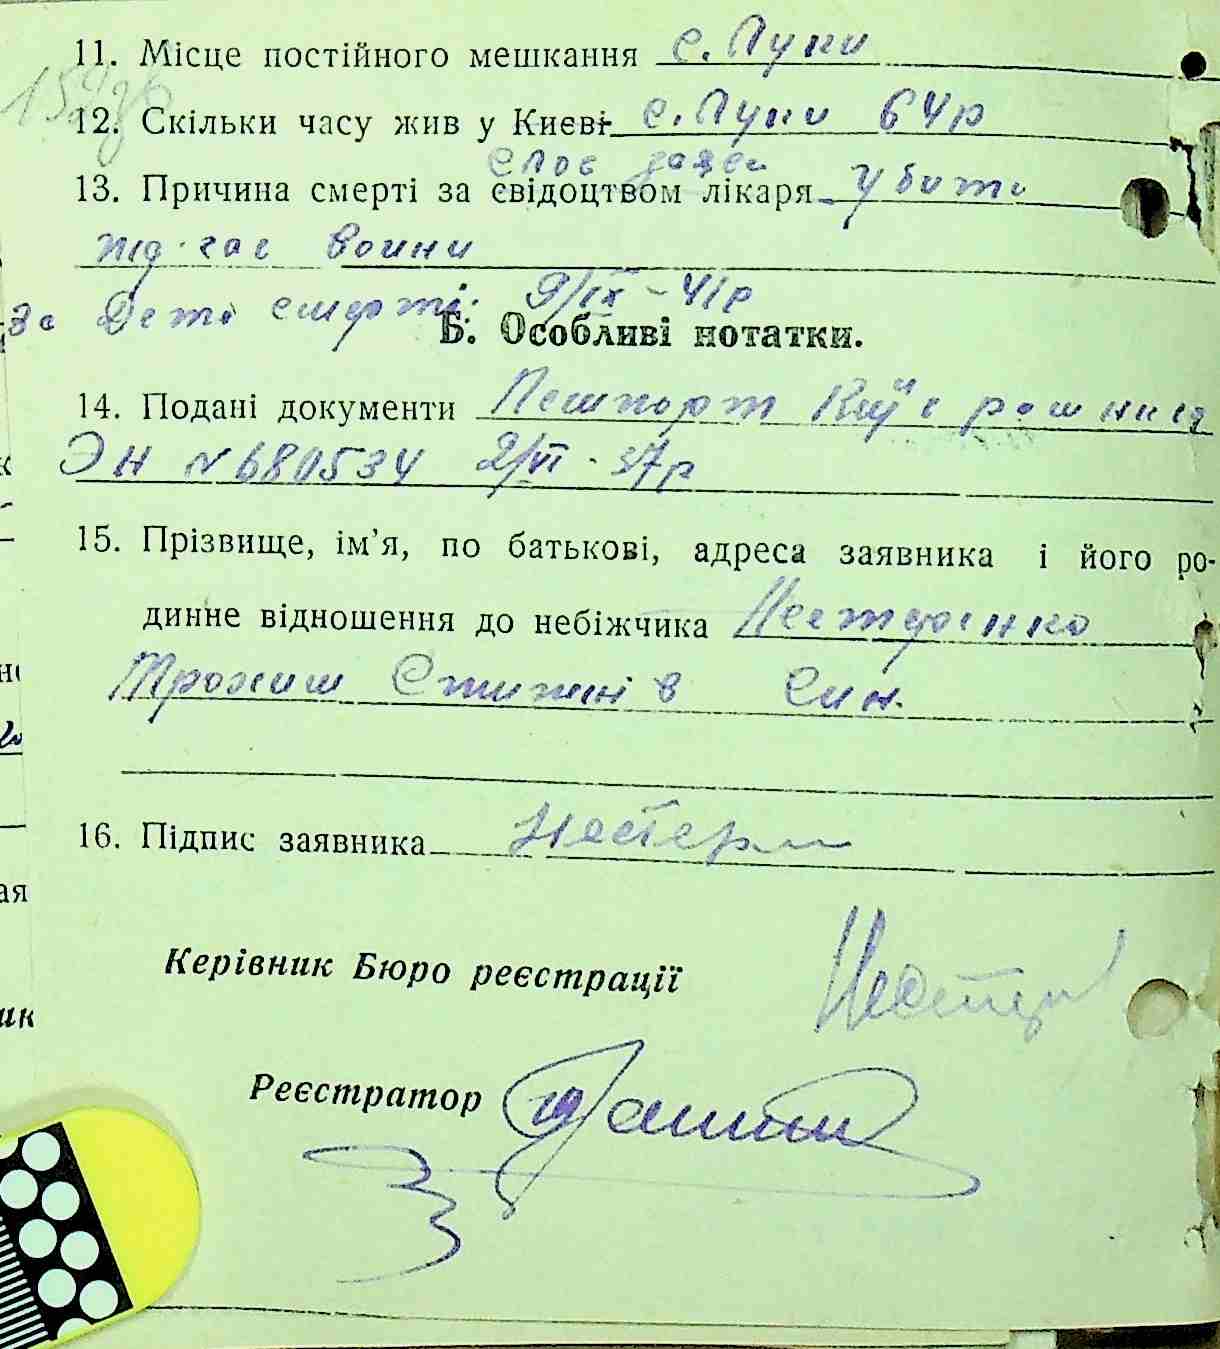 11. Місце постійного мешкання с. Пуни
12. Скільки часу жив у Києві с. Пуни 64 р
13. Причина смерті за свідоцтвом лікаря убито
під час воини
смерті: 9/IX - 41р
Б. Особливі нотатки.
14. Подані документи Пашпорт
ЭН № 680534 2/VI - 37р
15. Прізвище, ім'я, по батькові, адреса заявника і його ро-
динне відношення до небіжчика Нестеренко
син.
16. Підпис заявника
Керівник Бюро реєстрації
Реєстратор